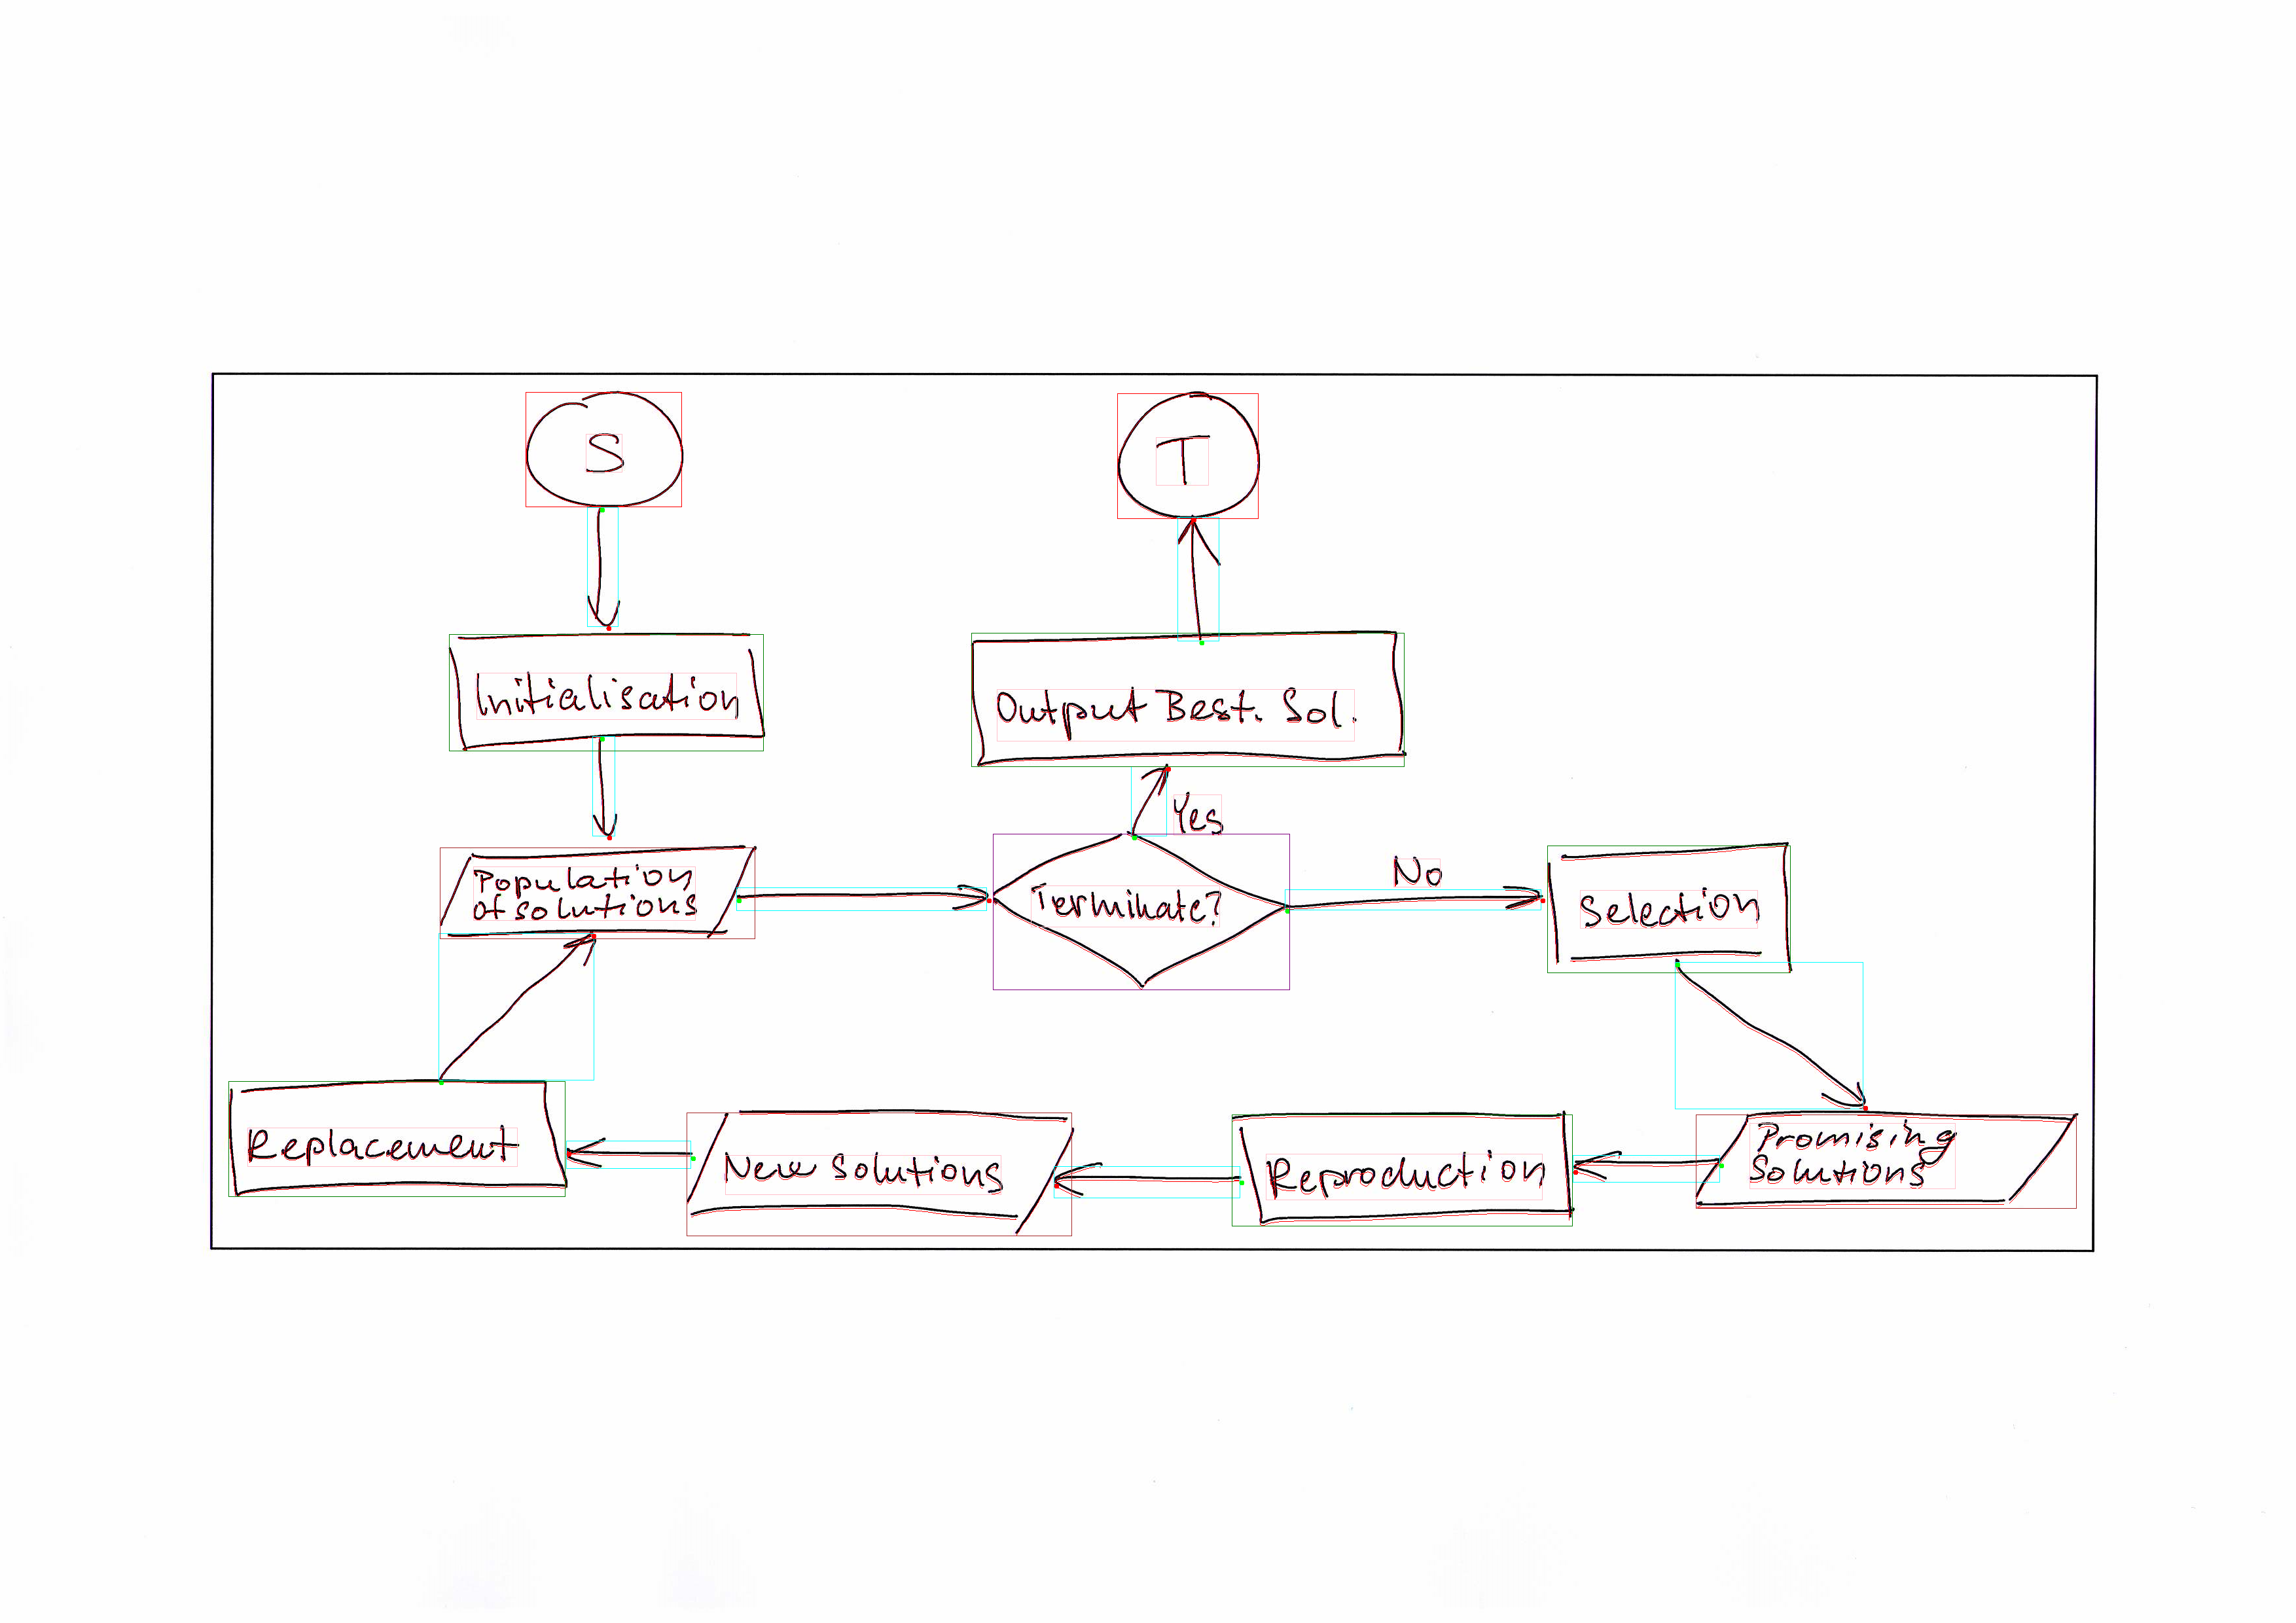 S
T
Initialisation
Output Best. Sol.
Yes
Population
of solutions
Terminate?
No
Selection
Replacement
New Solutions
Reproduction
Promising
Solutions